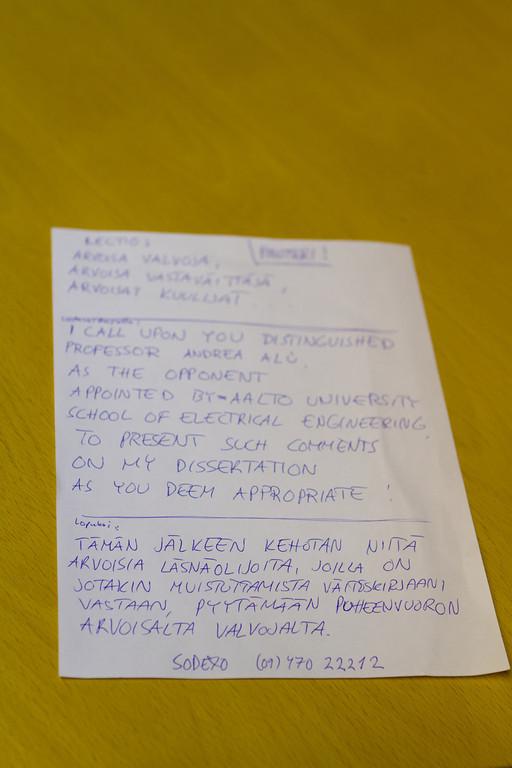 LECTIO:
ARVOISA VALVOJA,
ARVOISA VASTAVÄITTÄJÄ,
ARVOISAT KUULIJAT
I CALL UPON YOU DISTINGUISHED
PROFESSOR ANDREA ALÙ
AS THE OPPONENT
APPOINTED BY AALTO UNIVERSITY
SCHOOL OF ELECTRICAL ENGINEERING
TO PRESENT SUCH COMMENTS
ON MY DISSERTATION
AS YOU DEEM APPROPRIATE!
Lopuksi:
TÄMÄN JÄLKEEN KEHOTAN NIITÄ
ARVOISIA LÄSNÄOLIJOITA, JOILLA ON
JOTAKIN MUISTUTTAMISTA VÄITÖSKIRJAANI
VASTAAN, PYYTÄMÄÄN PUHEENVUORON
ARVOISALTA VALVOJALTA.
SODEXO (09) 470 22212